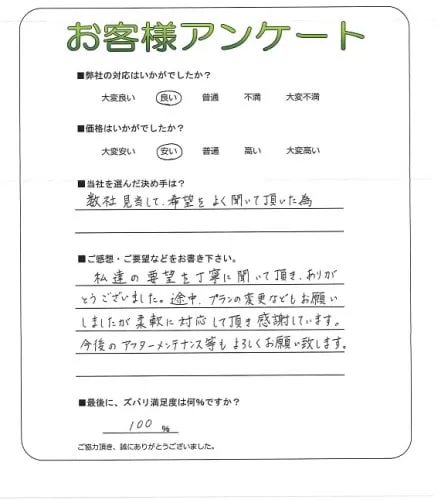 お客様アンケート
■弊社の対応はいかがでしたか？
大変良い 良い 普通 不満 大変不満
■価格はいかがでしたか？
大変安い 安い 普通 高い 大変高い
■当社を選んだ決め手は？
数社見当して、希望をよく聞いて頂いた為
■ご感想・ご要望などをお書き下さい。
私達の要望を丁寧に聞いて頂き、ありが
とうございました。途中、プランの変更などもお願い
しましたが柔軟に対応して頂き感謝しています。
今後のアフターメンテナンス等もよろしくお願い致します。
■最後に、ズバリ満足度は何％ですか？
100 ％
ご協力頂き、誠にありがとうございました。